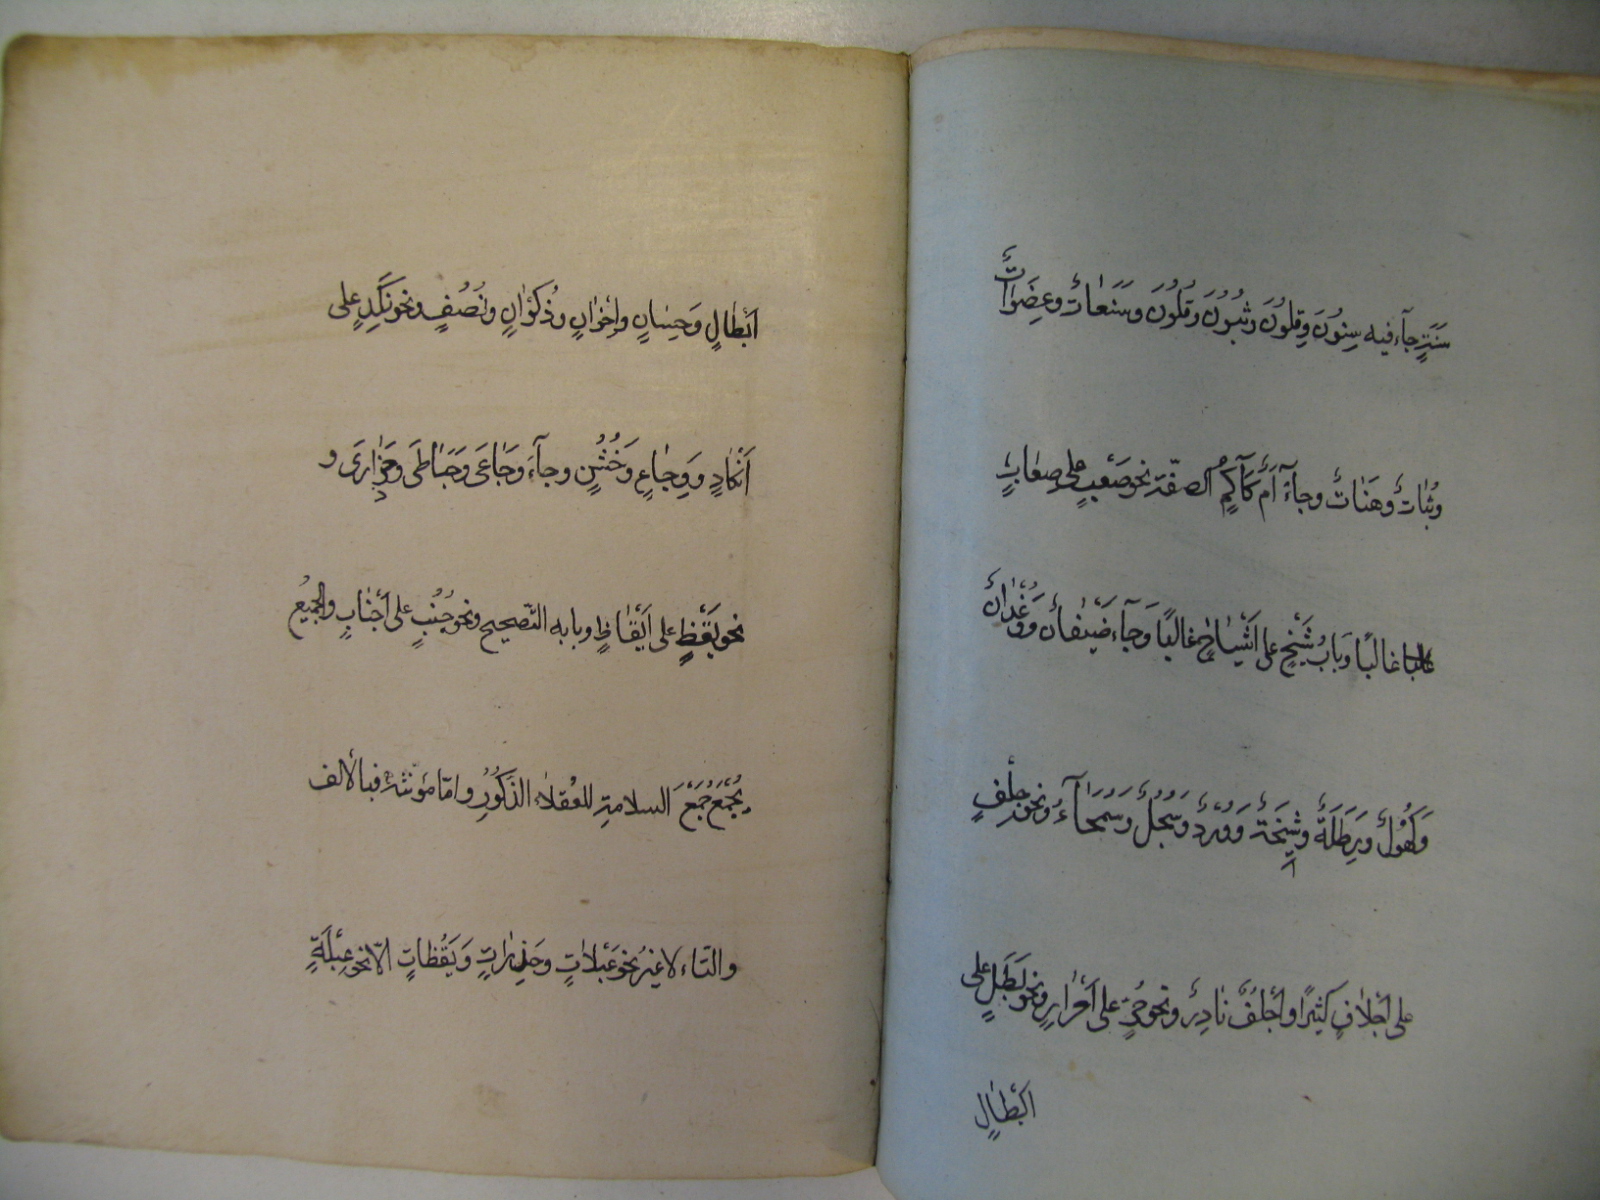 سَنَةٍ جآء فيه سِنُونَ وقِلُونَ وثُبُونَ وقُلُونَ وسَنَواتٌ وعِضَواتٌ
وثُباتٌ وهَناتٌ وجآءَ آمٌ كَآكُمٍ الصفة نحو صَعْبٍ على صِعابٍ
غالبًا وبابُ شَيْخٍ على اَشْياخٍ غالبًا وجآءَ ضِيفانٌ ووُغْدانٌ
وكُهُولٌ ورِطَلَةٌ وشِيخَةٌ ووُرْدٌ وسُحُلٌ وسُمَحآءُ ونحو جِلْفٍ
على اَجْلافٍ كثيرًا واَجْلُفٌ نادِرٌ ونحو حُرٍّ على اَحْرارٍ ونحو بَطَلٍ على
اَبْطالٍ
اَبْطالٍ وحِسانٍ واِخْوانٍ وذُكْرانٍ ونُصُفٍ ونحو نَكِدٍ على
اَنْكادٍ ووِجاعٍ وخُشُنٍ وجآءَ وَجاعَى وحَباطَى وحَذارَى و
نحو يَقُظٍ على اَيْقاظٍ وبابه التّصحيح ونحو جُنُبٍ على اَجْنابٍ والجميعُ
يُجْمَعُ جَمْعَ السلامةِ للعُقلاء الذُّكُورِ وامّا مؤنّثُهُ فبالالف
والتاء لا غيرُ نحو عَبْلاتٍ وحَذِراتٍ ويَقُظاتٍ الّا نحو عَبْلَةٍ